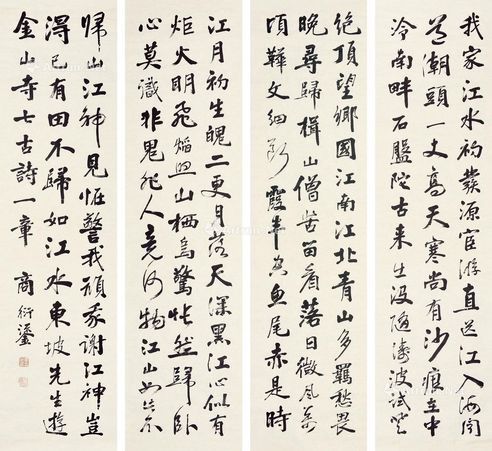 我家江水初發源宦游直送江入海聞
道潮頭一丈高天寒尚有沙痕在中
泠南畔石盤陀古来出没隨濤波試登
絶頂望鄉國江南江北青山多羈愁畏
晚尋歸楫山僧苦留看落日微風萬
頃鞾文細斷霞半空魚尾赤是時
江月初生魄二更月落天深黑江心似有
炬火明飛焰照山栖烏驚悵然歸臥
心莫識非鬼非人竟何物江山如此不
歸山江神見怪警我頑我謝江神豈
得已有田不歸如江水東坡先生遊
金山寺七古詩一章 商衍鎏